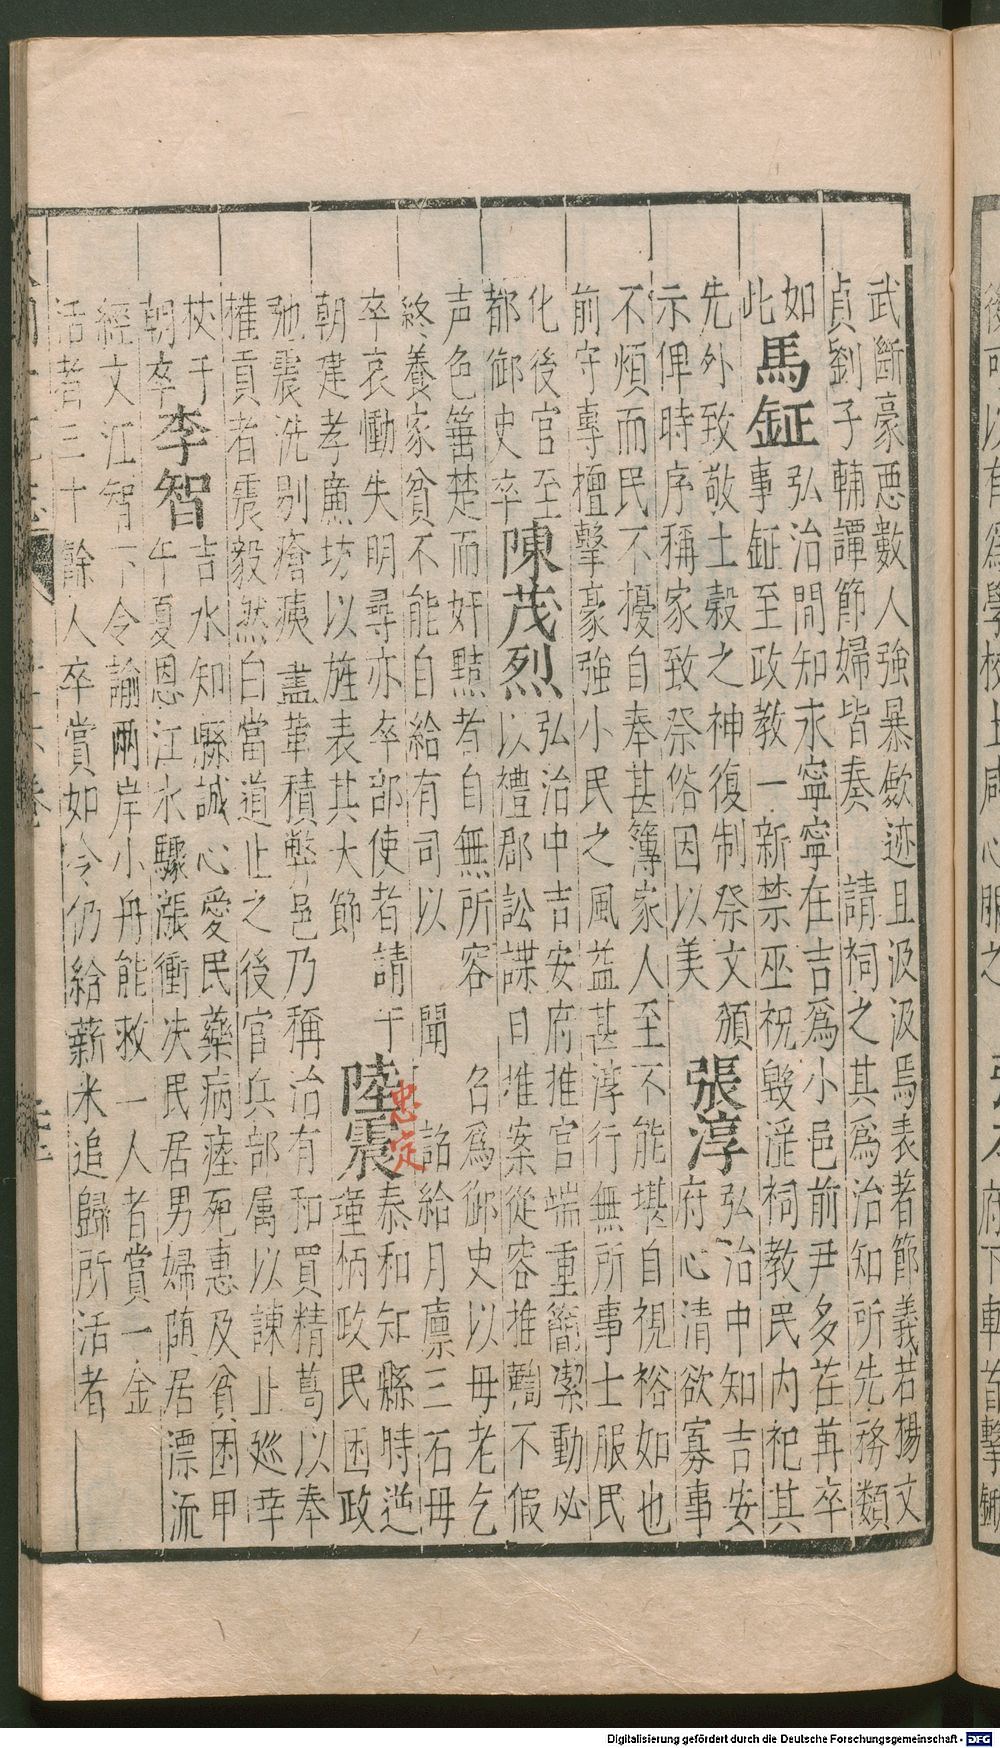 武斷豪惡數人強暴斂迹且汲汲焉表者節義若楊文
貞劉子輔譚節婦皆奏　請祠之其爲治知所先務類
如
此
馬鉦
弘治間知永寧寧在吉爲小邑前尹多荏苒卒
事鉦至政教一新禁巫祝毀淫祠教民内祀其
先外致敬土穀之神復制祭文頒
示俾時序稱家致祭俗因以美
張淳
弘治中知吉安
府心清欲寡事
不煩而民不擾自奉甚簿家人至不能堪自視裕如也
前守專擅擊豪強小民之風益甚淳行無所事士服民
化後官至
都御史卒
陳茂烈
弘治中吉安府推官端重簡潔動必
以禮郡訟諜日推案從容推鞫不假
声色箠楚而奸黠者自無所容　召爲御史以母老乞
終養家貧不能自給有司以　聞　詔給月廪三石母
卒哀慟失明尋亦卒部使者請于
朝建孝廉坊以旌表其大節
陸震
忠定
泰和知縣時逆
瑾柄政民困政
弛震洗剔瘡痍盡革積弊邑乃稱治有和買精葛以奉
權貢者震毅然白當道止之後官兵部属以諫止廵幸
杖于
朝卒
李智
吉水知縣誠心愛民藥病瘞死惠及貧困甲
午夏恩江水驟漲衝决民居男婦随居漂流
經文江智下令諭兩岸小舟能救一人者賞一金
活者三十餘人卒賞如令仍給薪米追歸所活者
後可以有爲學校士咸心服之
府下車首擊鉏
Digitalisierung gefördert durch die Deutsche Forschungsgemeinschaft - DFG